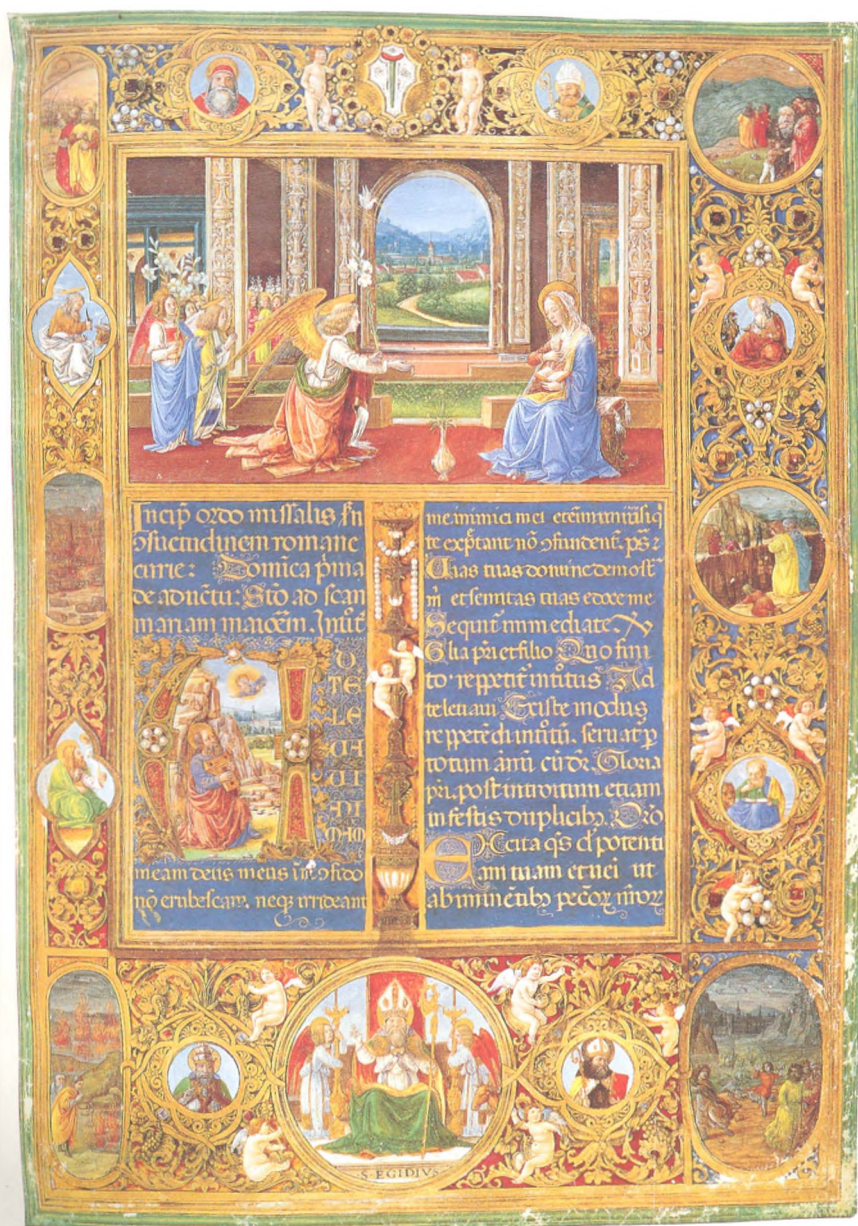 Incip ordo missalis scn
ɔsuetudinem romane
curie: Dominica pma
de aduetu: Sto ad scan
mariam maioem. Intit
A
D
TE
LE
UA
UI
ANI
MAM
meam deus meus in te ɔfido
nō erubescam. neqȝ irrideant
me inimici mei etenim
te exptant nō ɔfundent. ps.
Uias tuas domine demost
m et semitas tuas edoce me
Sequit immediate
Glia pri et filio Quo fini
to. reppetit intitus Ad
te leuaui. Et iste modus
reppetēdi intitū. seruat p
totum annū. cū dr. Gloria
pri. post introitum etiam
in festis duplicibȝ. Oro
Excita qs d potenti
am tuam et ueni ut
ab imminētibȝ peccoȝ nroȝ
S EGIDIVS